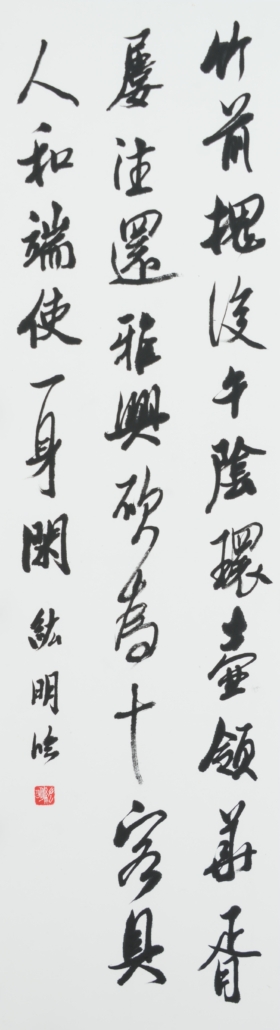 竹前槐後午陰環壺領華胥
屡往還雅興欲為十客具
人和端使一身閑 紘明